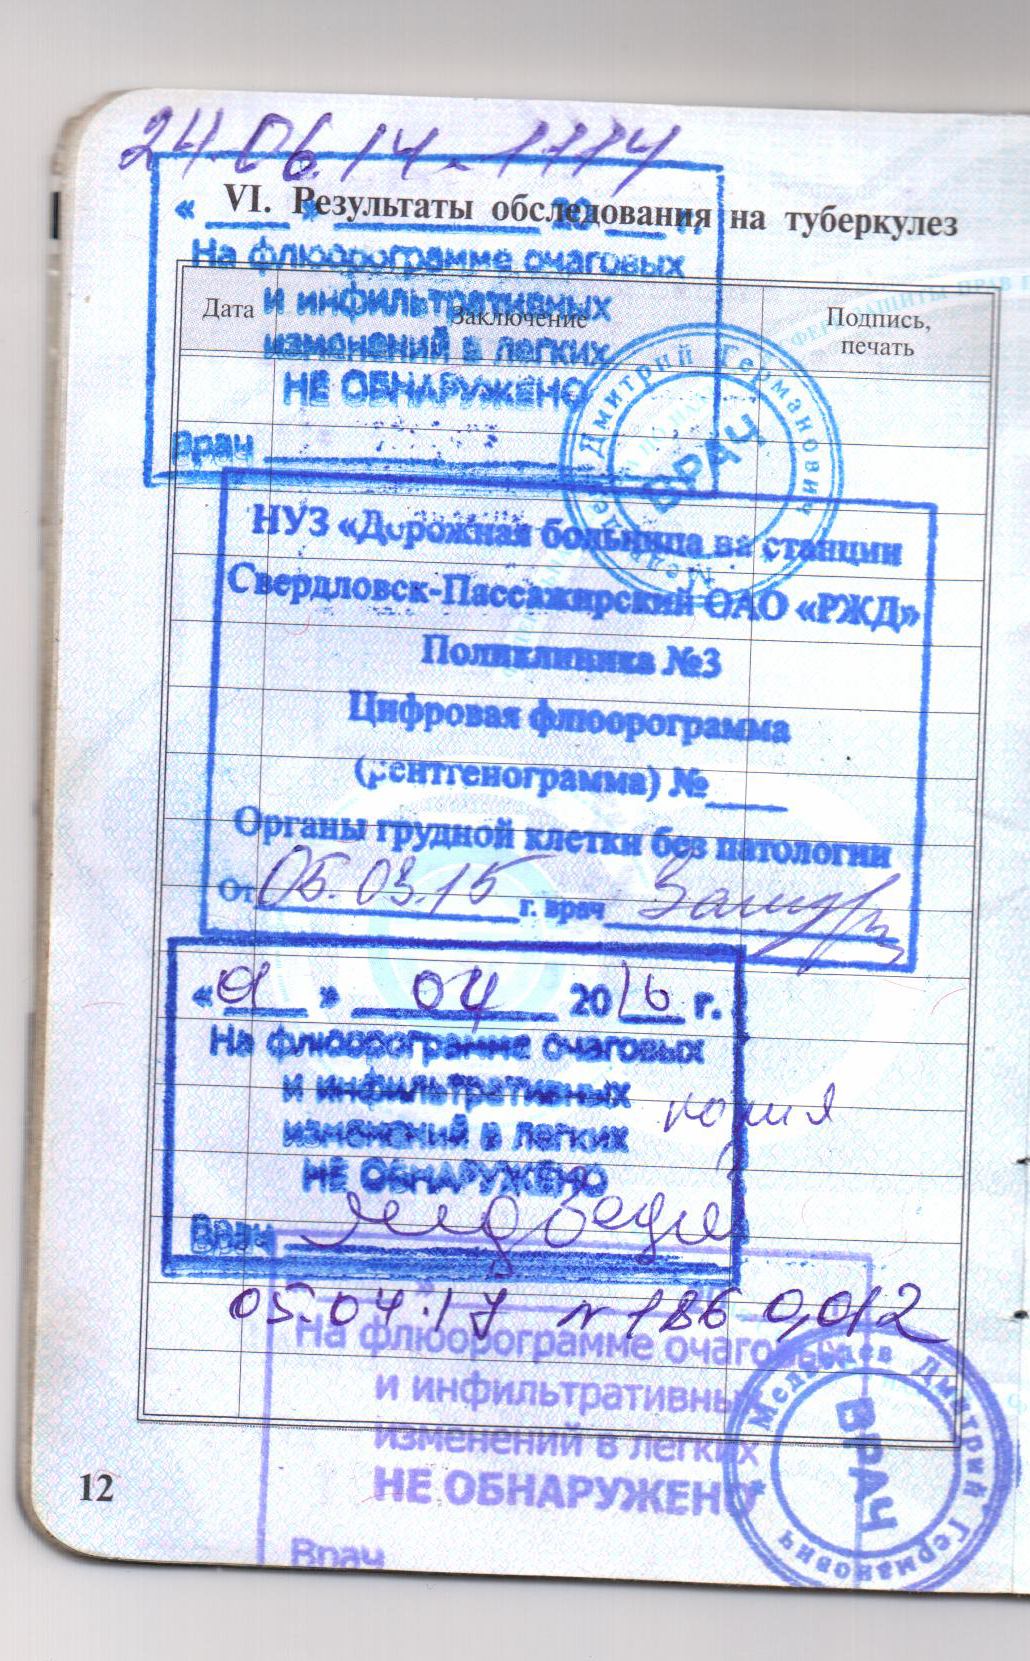 24.06.14 - 1114
VI. Результаты обследования на туберкулез
« » 20 г.
На флюорограмме очаговых
и инфильтративных
изменений в легких
НЕ ОБНАРУЖЕНО
Врач
Дата Заключение Подпись, печать
Медведев Дмитрий Германович
ВРАЧ
НУЗ «Дорожная больница на станции
Свердловск-Пассажирский ОАО «РЖД»
Поликлиника №3
Цифровая флюорограмма
(рентгенограмма) №
Органы грудной клетки без патологии
От 05.03.15 г. врач
« 9 » 04 2016 г.
На флюорограмме очаговых
и инфильтративных
изменений в легких
НЕ ОБНАРУЖЕНО
копия
Врач
05.04.17 N 186 0,012
На флюорограмме очаговых
и инфильтративных
изменений в легких
НЕ ОБНАРУЖЕНО
Врач
Медведев Дмитрий Германович
ВРАЧ
12